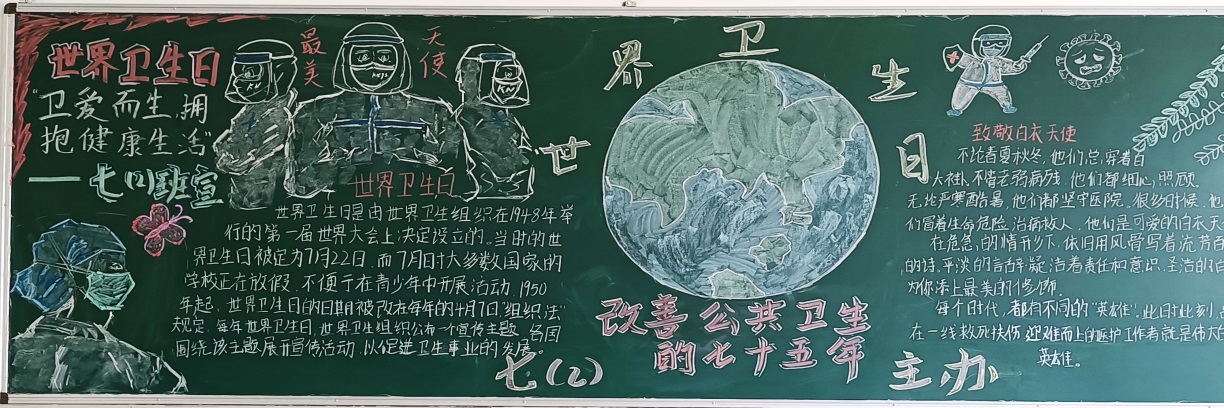 世界卫生日
"卫爱而生,拥
抱健康生活"
——七(2)班宣
最美
天使
KN
KN
世界卫生日
世界卫生日是由世界卫生组织在1948年举
行的第一届世界大会上决定设立的。当时的世
界卫生日被定为7月22日,而7月时大多数国家的
学校正在放假,不便于在青少年中开展活动,1950
年起,世界卫生日的日期被改在每年的4月7日"组织法"
规定,每年世界卫生日,世界卫生组织公布一个宣传主题,各国
围绕该主题展开宣传活动,以促进卫生事业的发展。
世界卫生日
改善公共卫生
的七十五年
七(2)
主办
致敬白衣天使
不论春夏秋冬,他们总穿着白
大褂,不惜老弱病残,他们都细心照顾。
无论严寒酷暑,他们都坚守医院。很多时候,他
们冒着生命危险,治病救人。他们是可爱的白衣天
在危急的情形下,依旧用风骨写着
的诗,平淡的言语凝结着责任和意识,圣洁的白
为你添上最美的修饰。
每个时代,都有不同的"英雄",此时此刻,
在一线救死扶伤,迎难而上的医护工作者就是伟大
英雄。